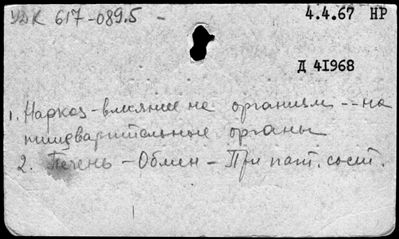 УДК 617-089.5 - 4.4.67 НР
Д 41968
1. Наркоз - влияние на организм -- на
пищеварительные органы
2. Печень - Обмен - При пат. сост.